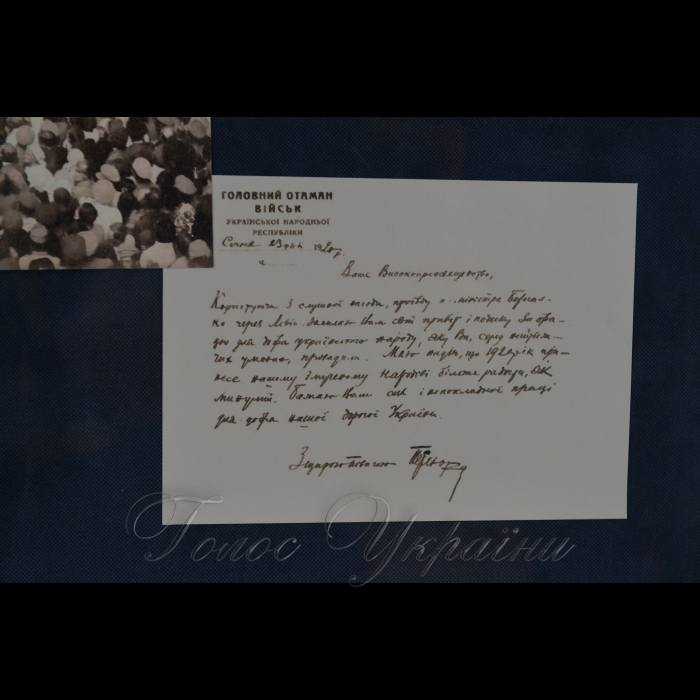 ГОЛОВНИЙ ОТАМАН
ВІЙСЬК
УКРАЇНСЬКОЇ НАРОДНЬОЇ
РЕСПУБЛІКИ
Січня 23 дня 1920 р.
Ваше Високопреосвященство,
з слушної нагоди, приїзду п. міністра
ко через Львів засилаю Вам свій привіт і подяку за пра-
цю для добра українського народу, яку Ви, серед
чих умовин, провадили. Маю надію, що 1920 рік при-
несе нашому змученому народові більше радощі, як
минулий. Бажаю Вам сил і непокладної праці
для добра нашої дорогої України.
З щирою повагою
Голос України